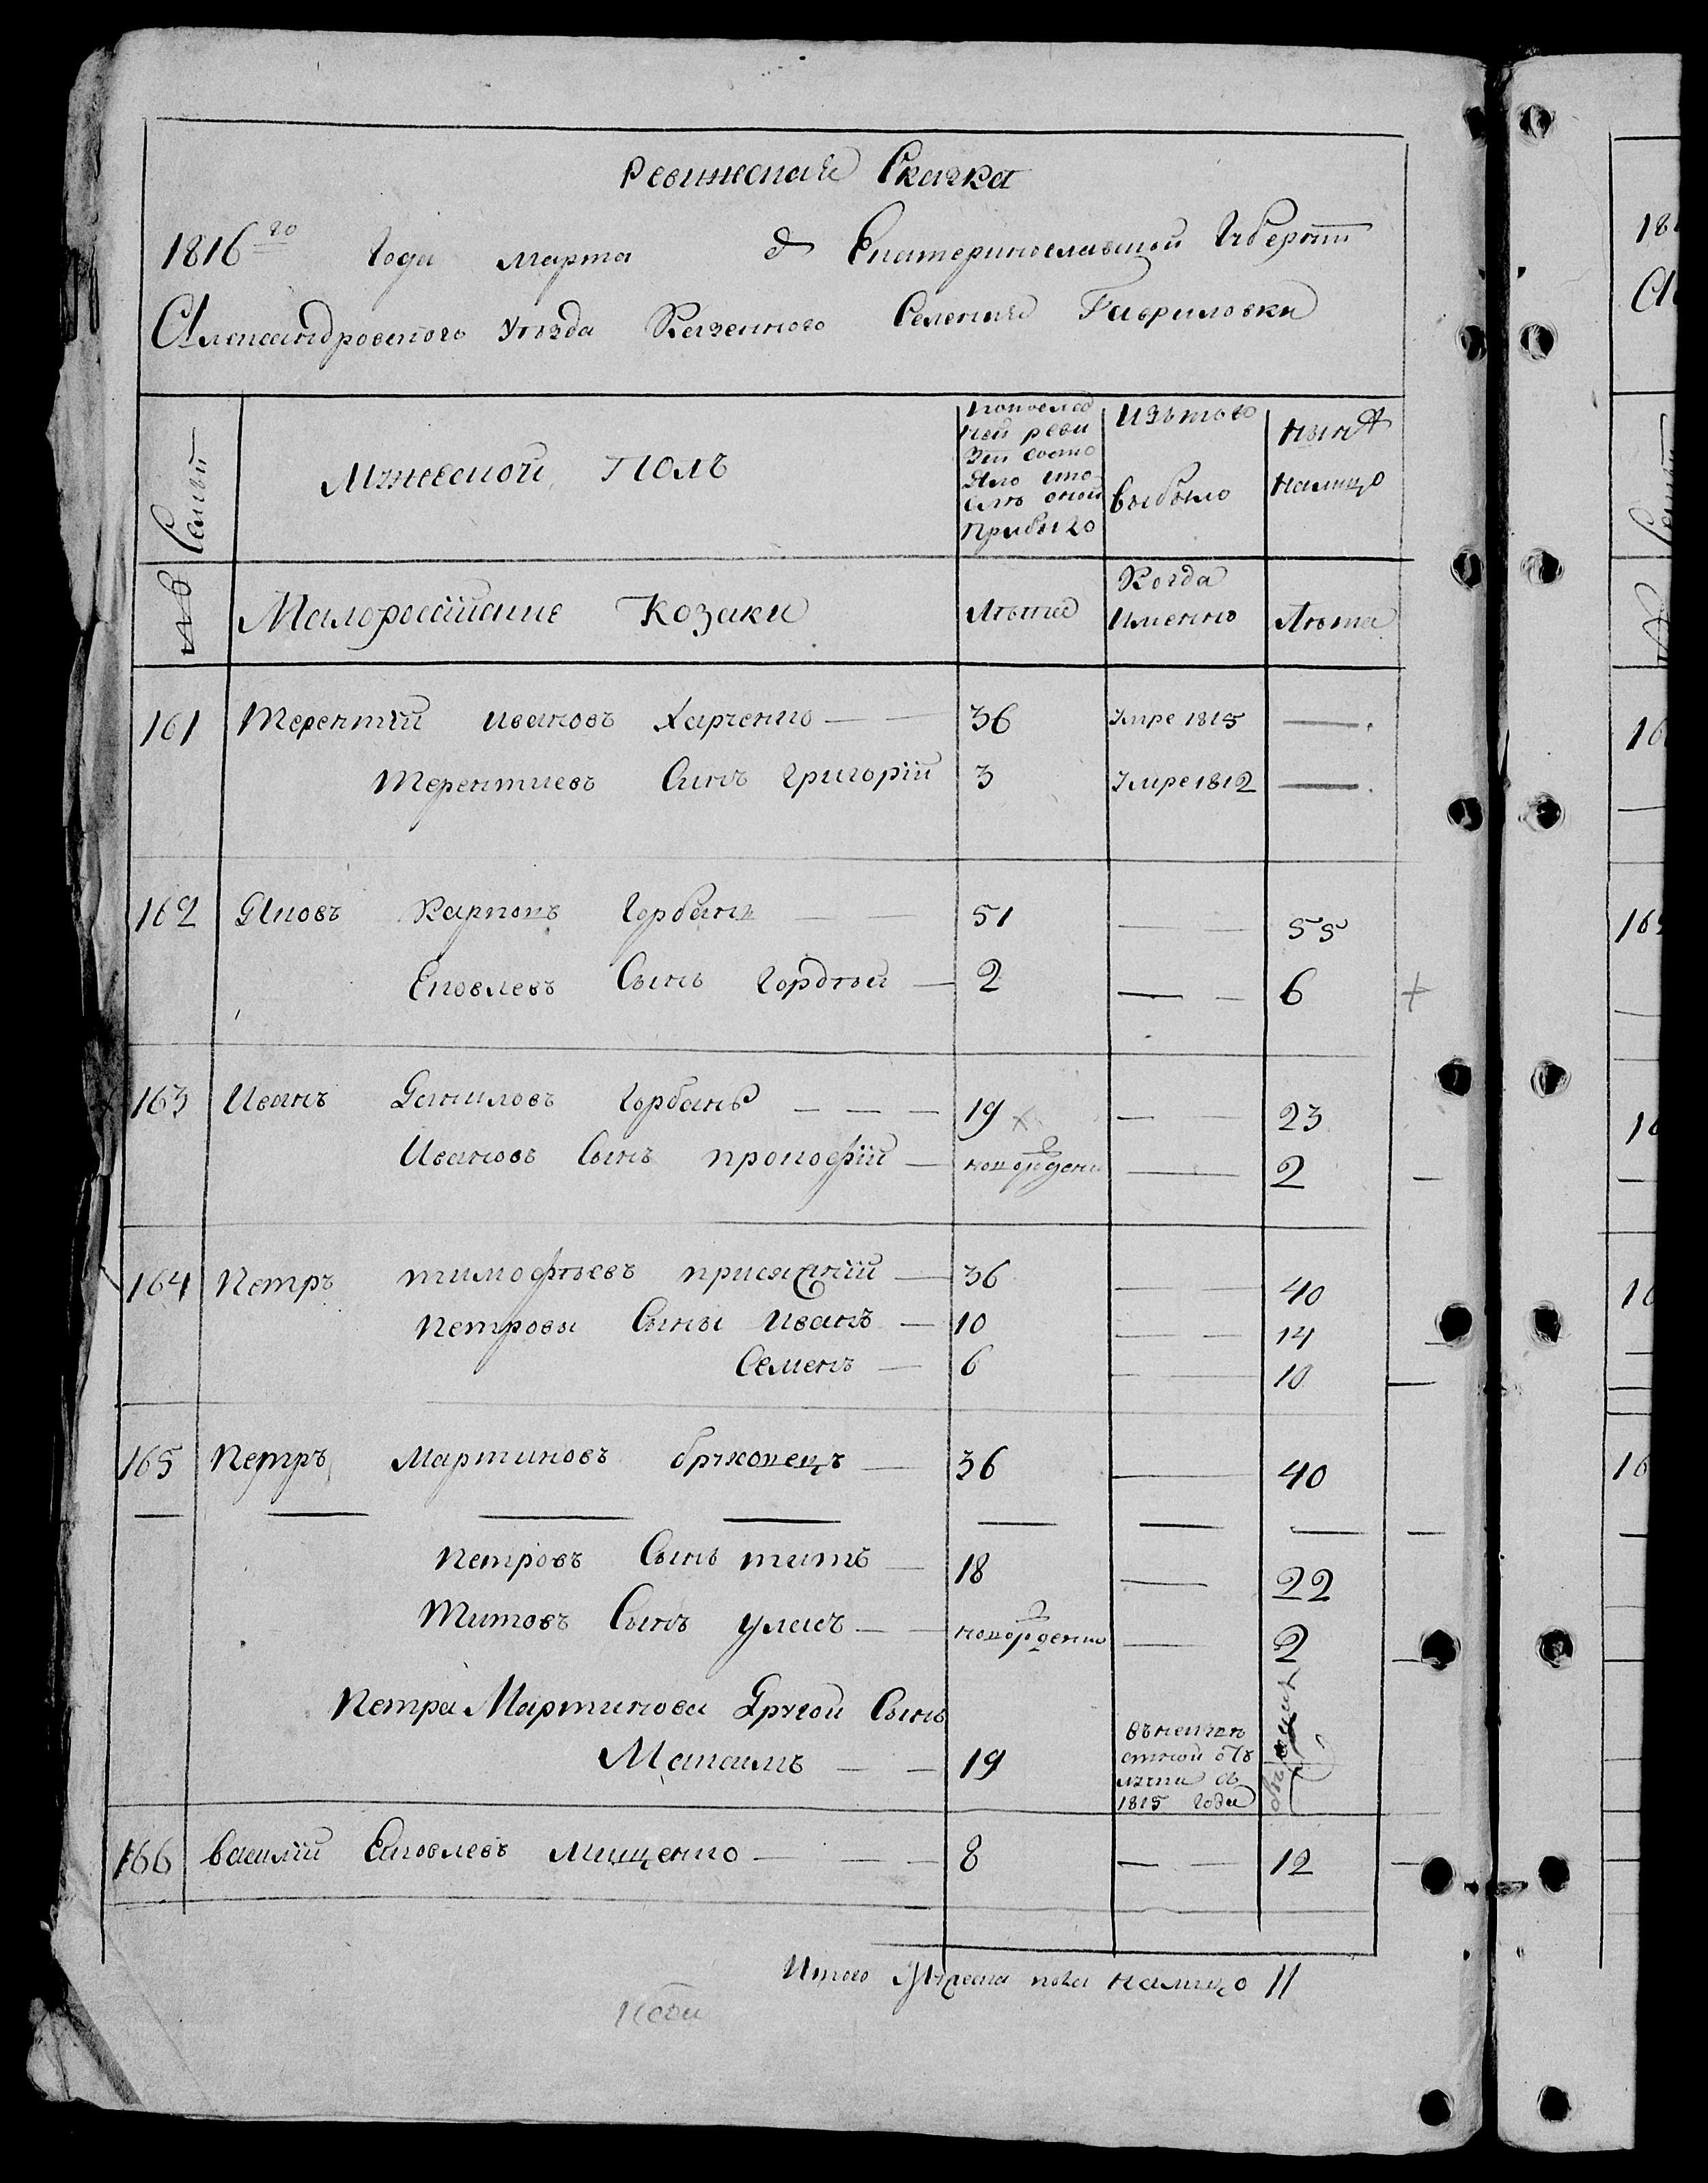 Ревижская Сказка
1816го Года Марта д Екатеринославской Губернїи
Александровского Уезда Казенного Селения Гавриловки
№ Семьи
Мужеской Полъ
По последней ревизіи состояло и после оной прибыло
Изъ того выбыло
Ныне налицо
Малороссийские Козаки
Лета
Когда именно
Лета
161 Терентїй Ивановъ Харченко — — 36 Умре 1815 —
Терентиевъ Синъ Григорїй 3 Умре 1812 —
162 Яковъ Карповъ Горбань — — 51 — — 55
Ековлевъ Сынъ Гордѣй — 2 — — 6
163 Иванъ Даниловъ Горбань — — — 19 — — 23
Ивановъ Сынъ Прокофїй — новорожденн — 2
164 Петръ Тимофѣевъ — 36 — — 40
Петровы Сыны Иванъ — 10 — — 14
Семенъ — 6 — — 10
165 Петръ Мартиновъ Бруховецъ — 36 — 40
Петровъ Сынъ Титъ — 18 — 22
Титовъ Сынъ Уласъ — — новорожденны — 2
Петра Мартинова Другой Сынъ
Макаимъ — — 19
1815 Года
166 Василїй Ековлевъ Мищенко — — — 8 — — 12
Итого Мужеска пола налицо 11